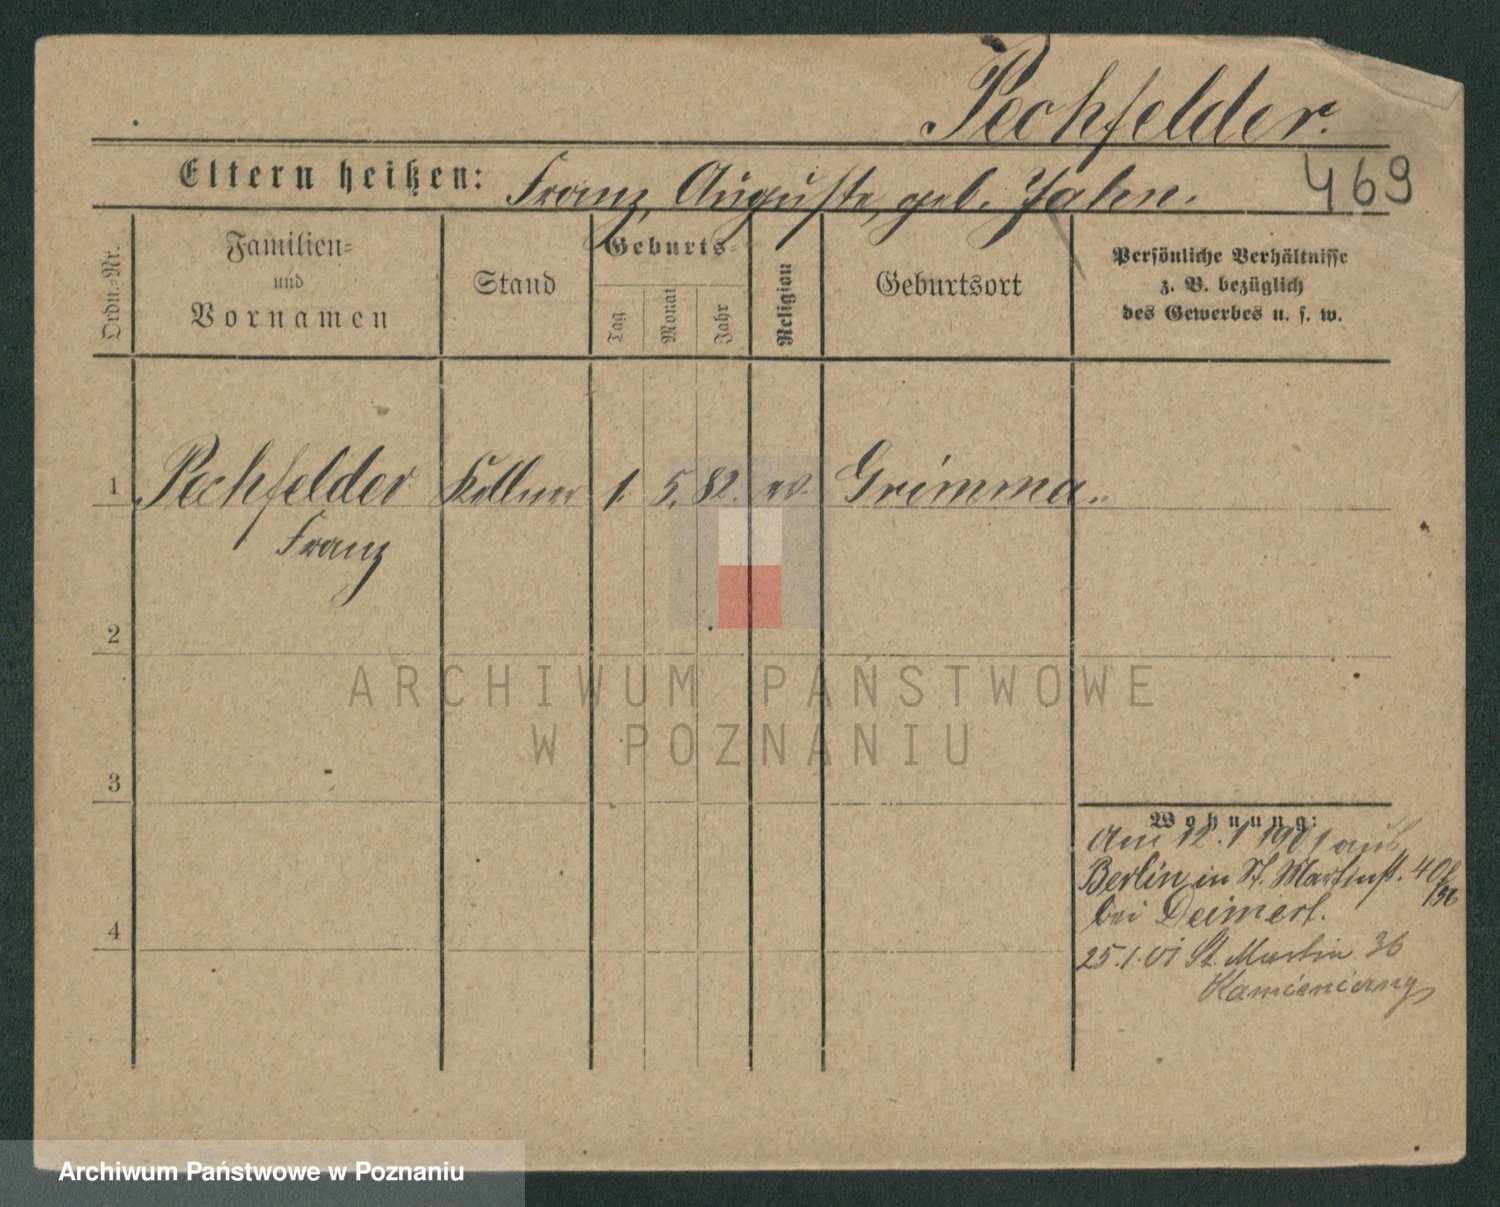 Pechfelder.
Eltern heißen: Franz, Auguste, geb. 469
Ordn.-Nr.
Familien-
und
Vornamen
Stand
Geburts-
Tag
Monat
Jahr
Religion
Geburtsort
Persönliche Verhältnisse
z. B. bezüglich
des Gewerbes u. s. w.
1 Pechfelder Kellner 1. 5. 82. ev. Grimma.
Franz
2
3
4
Wohnung:
Am 12.1 1901 aus
Berlin in St. Martinst. 40
bei
25.1.01 St. Martin 36
ARCHIWUM PAŃSTWOWE
W POZNANIU
Archiwum Państwowe w Poznaniu